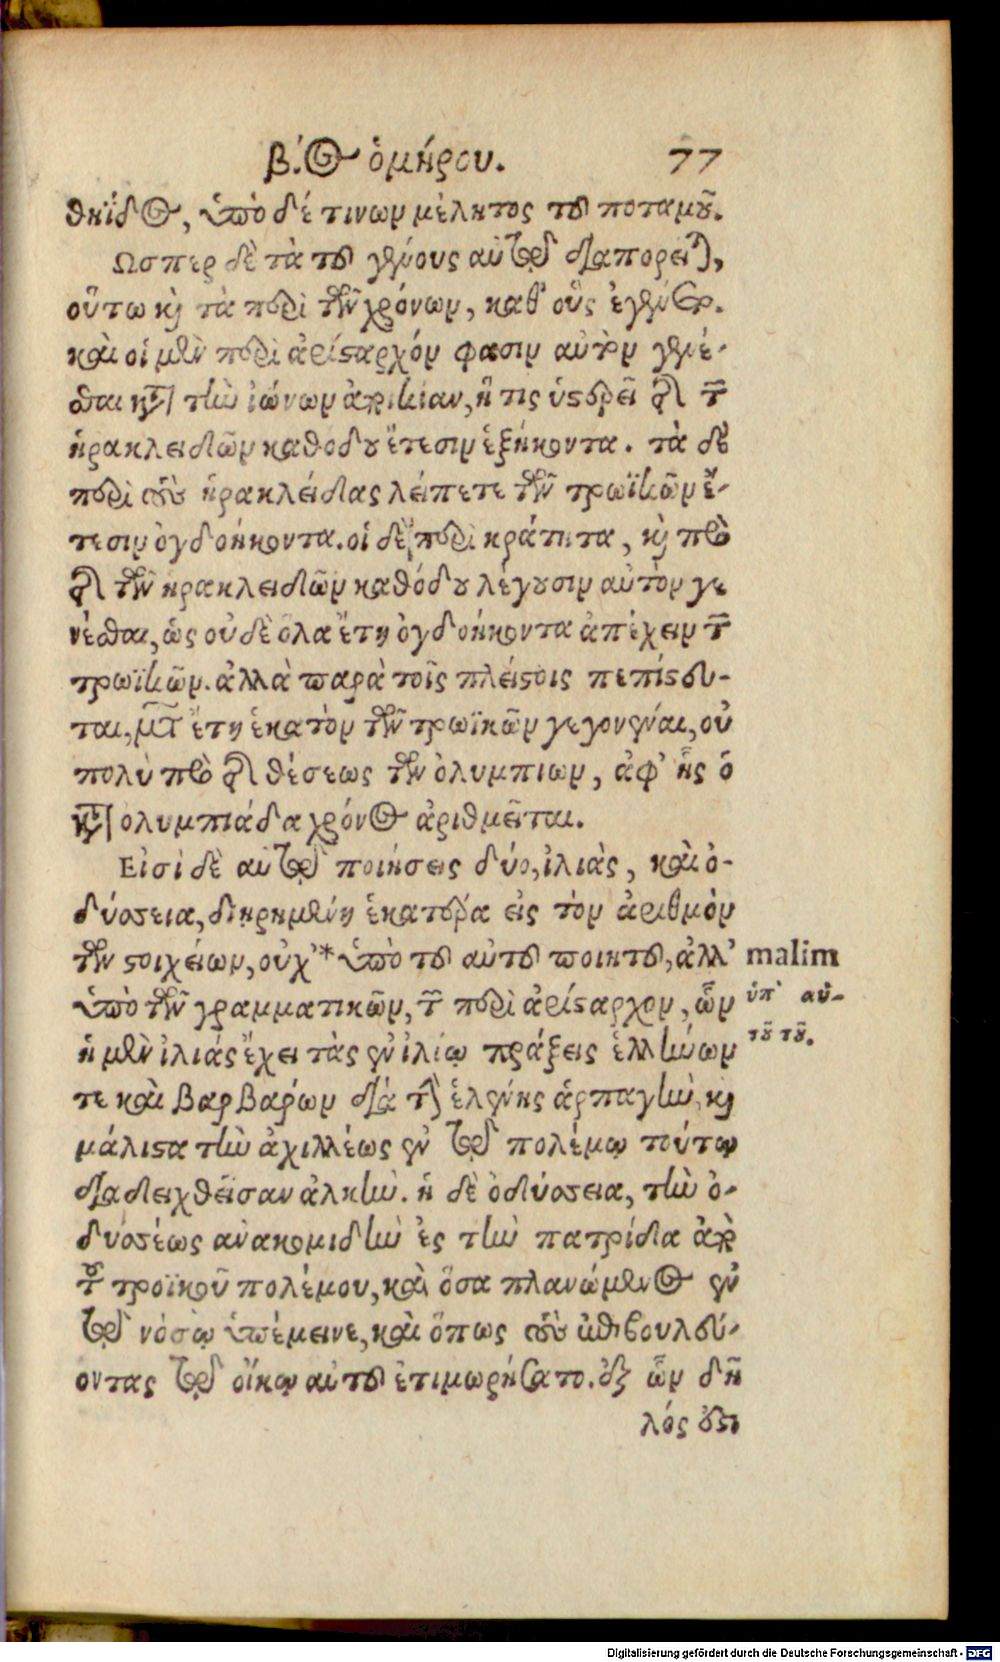 β.Ος ὁμήρου. 77
θηΐδος, ὑπὸ δέ τινων μέλητος τοῦ ποταμοῦ.
Ωσπερ δὲ τὰ τοῦ γένους αὐτῷ διαπορεῖται,
οὕτω καὶ τὰ περὶ τῶν χρόνων, καθ’ οὓς ἐγένετο.
καὶ οἱ μὲν περὶ ἀρίσταρχόν φασιν αὐτὸν γενέ-
σθαι κατὰ τὴν ἰώνων ἀποικίαν, ἥ τις ὑστερεῖ τῆς τῶν
ἡρακλειδῶν καθοδου ἔτεσιν ἑξήκοντα. τὰ δὲ
περὶ τοὺς ἡρακλείδας λείπετε τῶν τρωϊκῶν ἔ-
τεσιν ὀγδοήκοντα. οἱ δὲ περὶ κράτητα, καὶ πρὸ
τῆς τῶν ηρακλειδῶν καθόδου λέγουσιν αὐτὸν γε
νέσθαι, ὡς οὐδὲ ὅλα ἔτη ὀγδοήκοντα ἀπέχειν τῶν
τρωϊκῶν. ἀλλὰ παρὰ τοῖς πλείστοις πεπίστευ-
ται, μετὰ ἔτη ἑκατὸν τῶν τρωϊκῶν γεγονέναι, οὐ
πολὺ πρὸ τῆς θέσεως τῶν ὀλυμπιων, ἀφ’ ἧς ὁ
κατὰ ολυμπιάδα χρόνος ἀριθμεῖται.
Εἰσὶ δὲ αὐτῷ ποιήσεις δύο, ἰλιὰς, καὶ ὀ-
δύσσεια, διῃρημένη ἑκατέρα εἰς τὸν ἀριθμὸν
τῶν στοιχείων, οὐχ’ * ὑπὸ τοῦ αὐτοῦ ποιητοῦ, ἀλλ’
malim
ὑπ’ αὐ-
τοῦ τοῦ.
ὑπὸ τῶν γραμματικῶν, τῶν περὶ ἀρίσταρχον, ὧν
ἡ μὲν ἰλιὰς ἔχει τὰς ἐν ἰλίῳ πράξεις ἑλλήνων
τε καὶ βαρβαρίων διὰ τὴν ἑλένης ἁρπαγὴν, καὶ
μάλιστα τὴν ἀχιλλέως ἐν τῷ πολέμῳ τούτῳ
διαδειχθεῖσαν ἀλκὴν. ἡ δὲ ὀδύσσεια, τὴν ὀ-
δυσσέως ανακομιδὴν ἐς τὴν πατρίδα ἀπὸ
τοῦ τροϊκοῦ πολέμου, καὶ ὅσα πλανώμενος ἐν
τῷ νόστῳ ὑπέμεινε, καὶ ὅπως τοὺς ἐπιβουλεύ-
οντας τῷ οἴκῳ αὐτοῦ ἐτιμωρήσατο. ἐξ ὧν δῆ
λός ἐστι
Digitalisierung gefördert durch die Deutsche Forschungsgemeinschaft - DFG